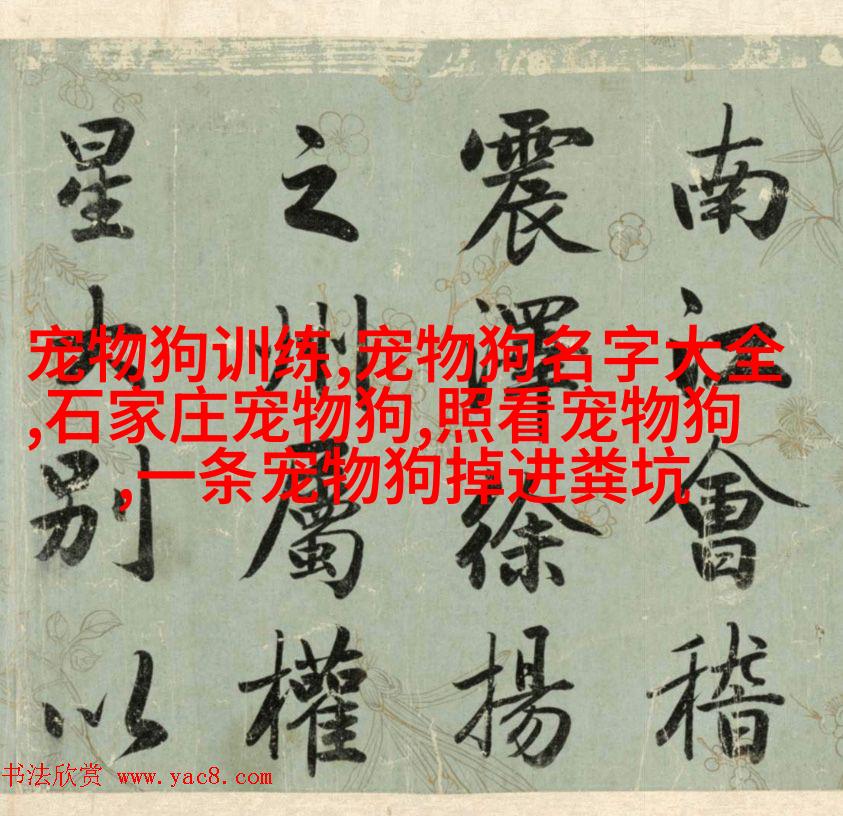 南江會稽
震澤徐揚
之州屬權
星別以
宠物狗训练,宠物狗名字大全
,石家庄宠物狗,照看宠物狗
,一条宠物狗掉进粪坑
书法欣赏 www.yac8.com